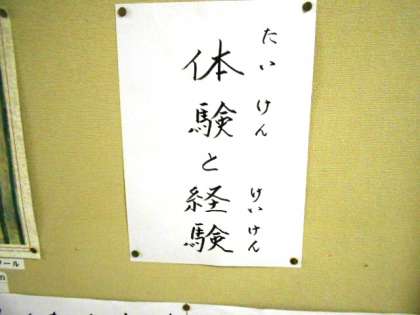 体験と経験
たいけん
けいけん
ール